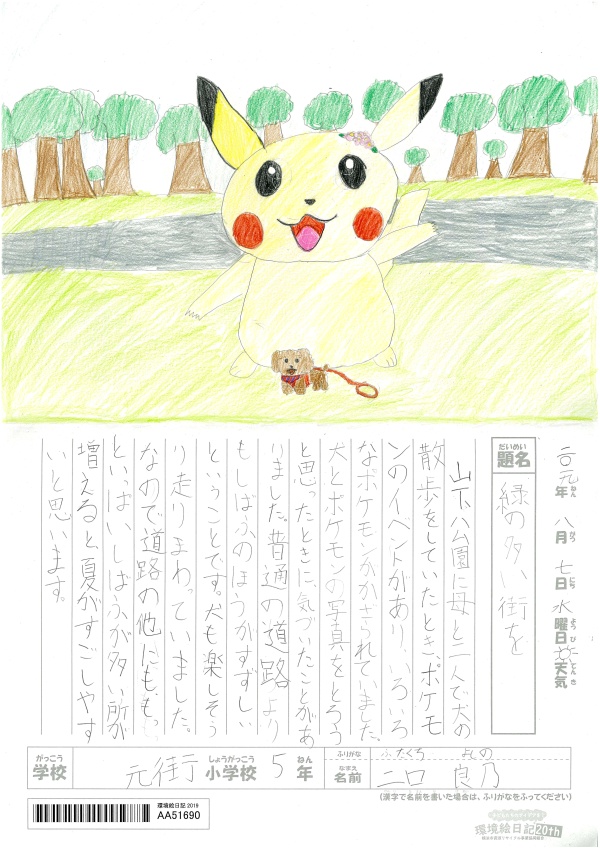 元年 八月 七日 水曜日 天気
ねん がつ にち ようび てんき
だいめい
題名
緑の多い街を
山下公園に母と二人で犬の
散歩をしていたとき、ポケモ
ンのイベントがあり、いろいろ
なポケモンがかざられていました。
犬とポケモンの写真をとろう
と思ったときに、気づいたことがあ
りました。普通の道路より
もしばふのほうがすずしい
ということです。犬も楽しそう
に走りまわっていました。
なので道路の他にももっ
といっぱいしばふが多い所が
増えると、夏がすごしやす
いと思います。
がっこう
学校
元街 小学校 5年
しょうがっこう ねん
ふりがな ふたくち よしの
なまえ
名前 二口 良乃
(漢字で名前を書いた場合は、ふりがなをふってください)
環境絵日記 2019
AA51690
環境絵日記 20th